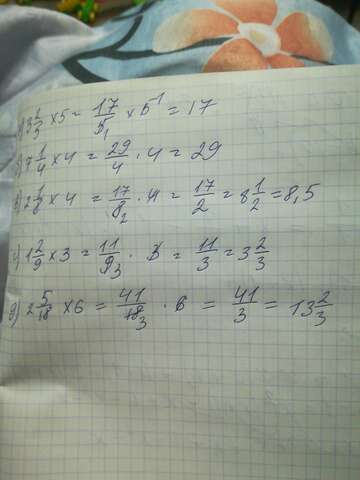 а) 3 2/5 × 5 = 17/5 1 × 5 1 = 17
б) 7 1/4 × 4 = 29/4 · 4 = 29
в) 2 1/8 × 4 = 17/8 2 · 4 = 17/2 = 8 1/2 = 8,5
г) 1 2/9 × 3 = 11/9 3 · 3 = 11/3 = 3 2/3
д) 2 5/18 × 6 = 41/18 3 · 6 = 41/3 = 13 2/3